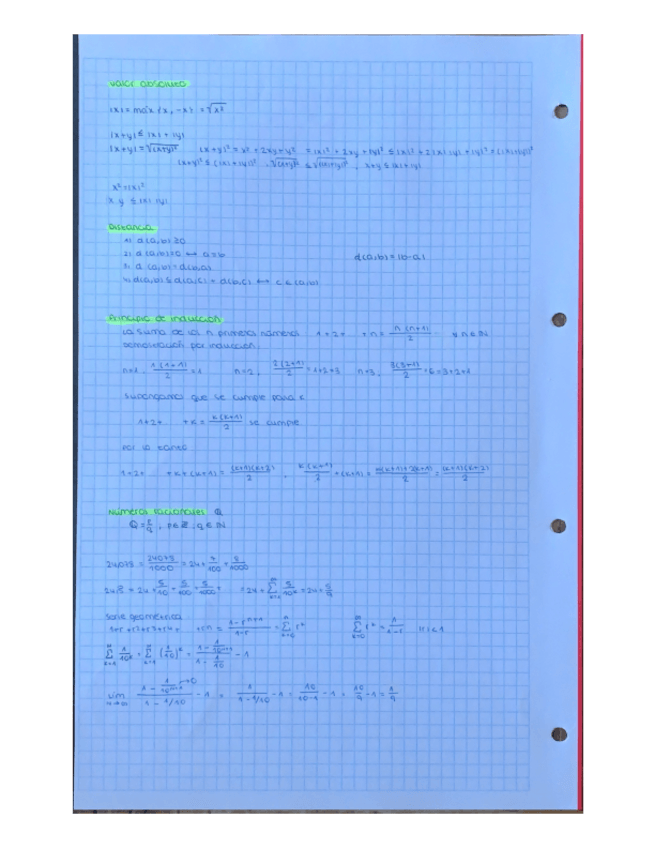 Valor absoluto
|x| = máx {x, -x} = √x²
|x+y| ≤ |x| + |y|
|x+y| = √(x+y)² (x+y)² = x² + 2xy + y² = |x|² + 2xy + |y|² ≤ |x|² + 2|x| |y| + |y|² = (|x|+|y|)²
(x+y)² ≤ (|x|+|y|)² , √(x+y)² ≤ √(|x|+|y|)² , x+y ≤ |x|+|y|
x² = |x|²
x y ≤ |x| |y|
Distancia
1) d(a,b) ≥ 0
2) d(a,b)=0 ↔ a=b d(a,b) = |b-a|
3) d(a,b) = d(b,a)
4) d(a,b) ≤ d(a,c) + d(b,c) ↔ c ∈ (a,b)
Principio de inducción
La suma de los n primeros números 1+2+ +n = n(n+1)/2 ∀ n ∈ ℕ
Demostración por inducción.
n=1, 1(1+1)/2 = 1 n=2, 2(2+1)/2 = 1+2=3 n=3, 3(3+1)/2 = 6 = 3+2+1
Supongamos que se cumple para k
1+2+ +k = k(k+1)/2 se cumple
Por lo tanto
1+2+ +k+(k+1) = (k+1)(k+2)/2 , k(k+1)/2 + (k+1) = k(k+1)+2(k+1)/2 = (k+1)(k+2)/2
Números racionales ℚ
ℚ = p/q , p ∈ ℤ, q ∈ ℕ
24,075 = 24075/1000 = 24 + 7/100 + 5/1000
= 24 + 5/10 + 5/100 + 5/1000 + = 24 + Σ 5/10ᵏ = 24 + 5/9
Serie geométrica
1+r+r²+r³+r⁴+ +rⁿ = 1-rⁿ⁺¹/1-r = Σ rᵏ Σ rᵏ = 1/1-r |r|<1
Σ 1/10ᵏ = Σ (1/10)ᵏ = 1 - 1/10ⁿ⁺¹ / 1 - 1/10 - 1
lim n→∞ 1 - 1/10ⁿ⁺¹ →0 / 1 - 1/10 - 1 = 1/1 - 1/10 - 1 = 10/10-1 - 1 = 10/9 - 1 = 1/9